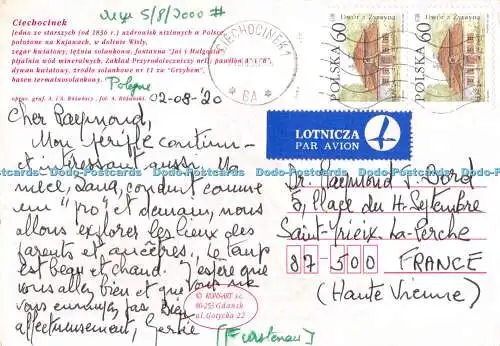 Ciechocinek
Jedno ze starszych (od 1836 r.) uzdrowisk nizinnych w Polsce,
położone na Kujawach, w dolinie Wisły,
zegar kwiatowy, tężnia solankowa, fontanna "Jaś i Małgosia"
pijalnia wód mineralnych, Zakład Przyrodoleczniczy nr 1, pawilon
dywan kwiatowy, źródło solankowe nr 11 za "Grzybem",
basen termalnosolankowy.
5/8/2000 #
Pologne
02-08-'20
CIECHOCINEK 1
* BA *
POLSKA 60
Dwór z Żyrzyna
POLSKA 60
Dwór z Żyrzyna
LOTNICZA
PAR AVION
Cher Raymond,
Mon périple continue
et intéressant aussi. Ma
nièce, conduit comme
un "pro" et demain, nous
allons explorer les lieux des
parents et ancêtres. Le temps
est beau et chaud. J'espère que
vous allez bien et que vous ne
vous ennuyez pas. Bien
affectueusement, Gertie
[Furstenau]
Dr. Raymond J. Dord
5, Place du H. Septembre
Saint-Yrieix-La-Perche
87-500 FRANCE
(Haute Vienne)
© KONSART s.c.
80-253 Gdańsk
ul. Gotycka 22
Dodo-Postcards